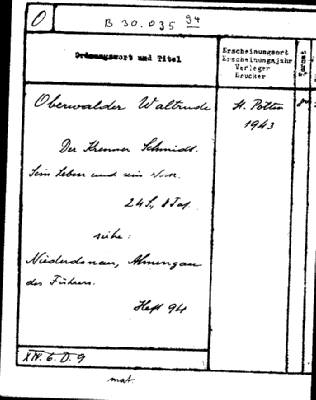 O
B 30.035 94
Ordnungswort und Titel
Erscheinungsort
Erscheinungsjahr
Verleger
Drucker
Format
Oberwalder Waltrude
St. Pölten
1943
Der Kremser Schmidt.
Sein Leben und sein Werk.
24 S, 8 Taf.
siehe:
Niederdonau, Ahnengau
des Führers.
Heft 94
XIV. 6. D. 9
mat.